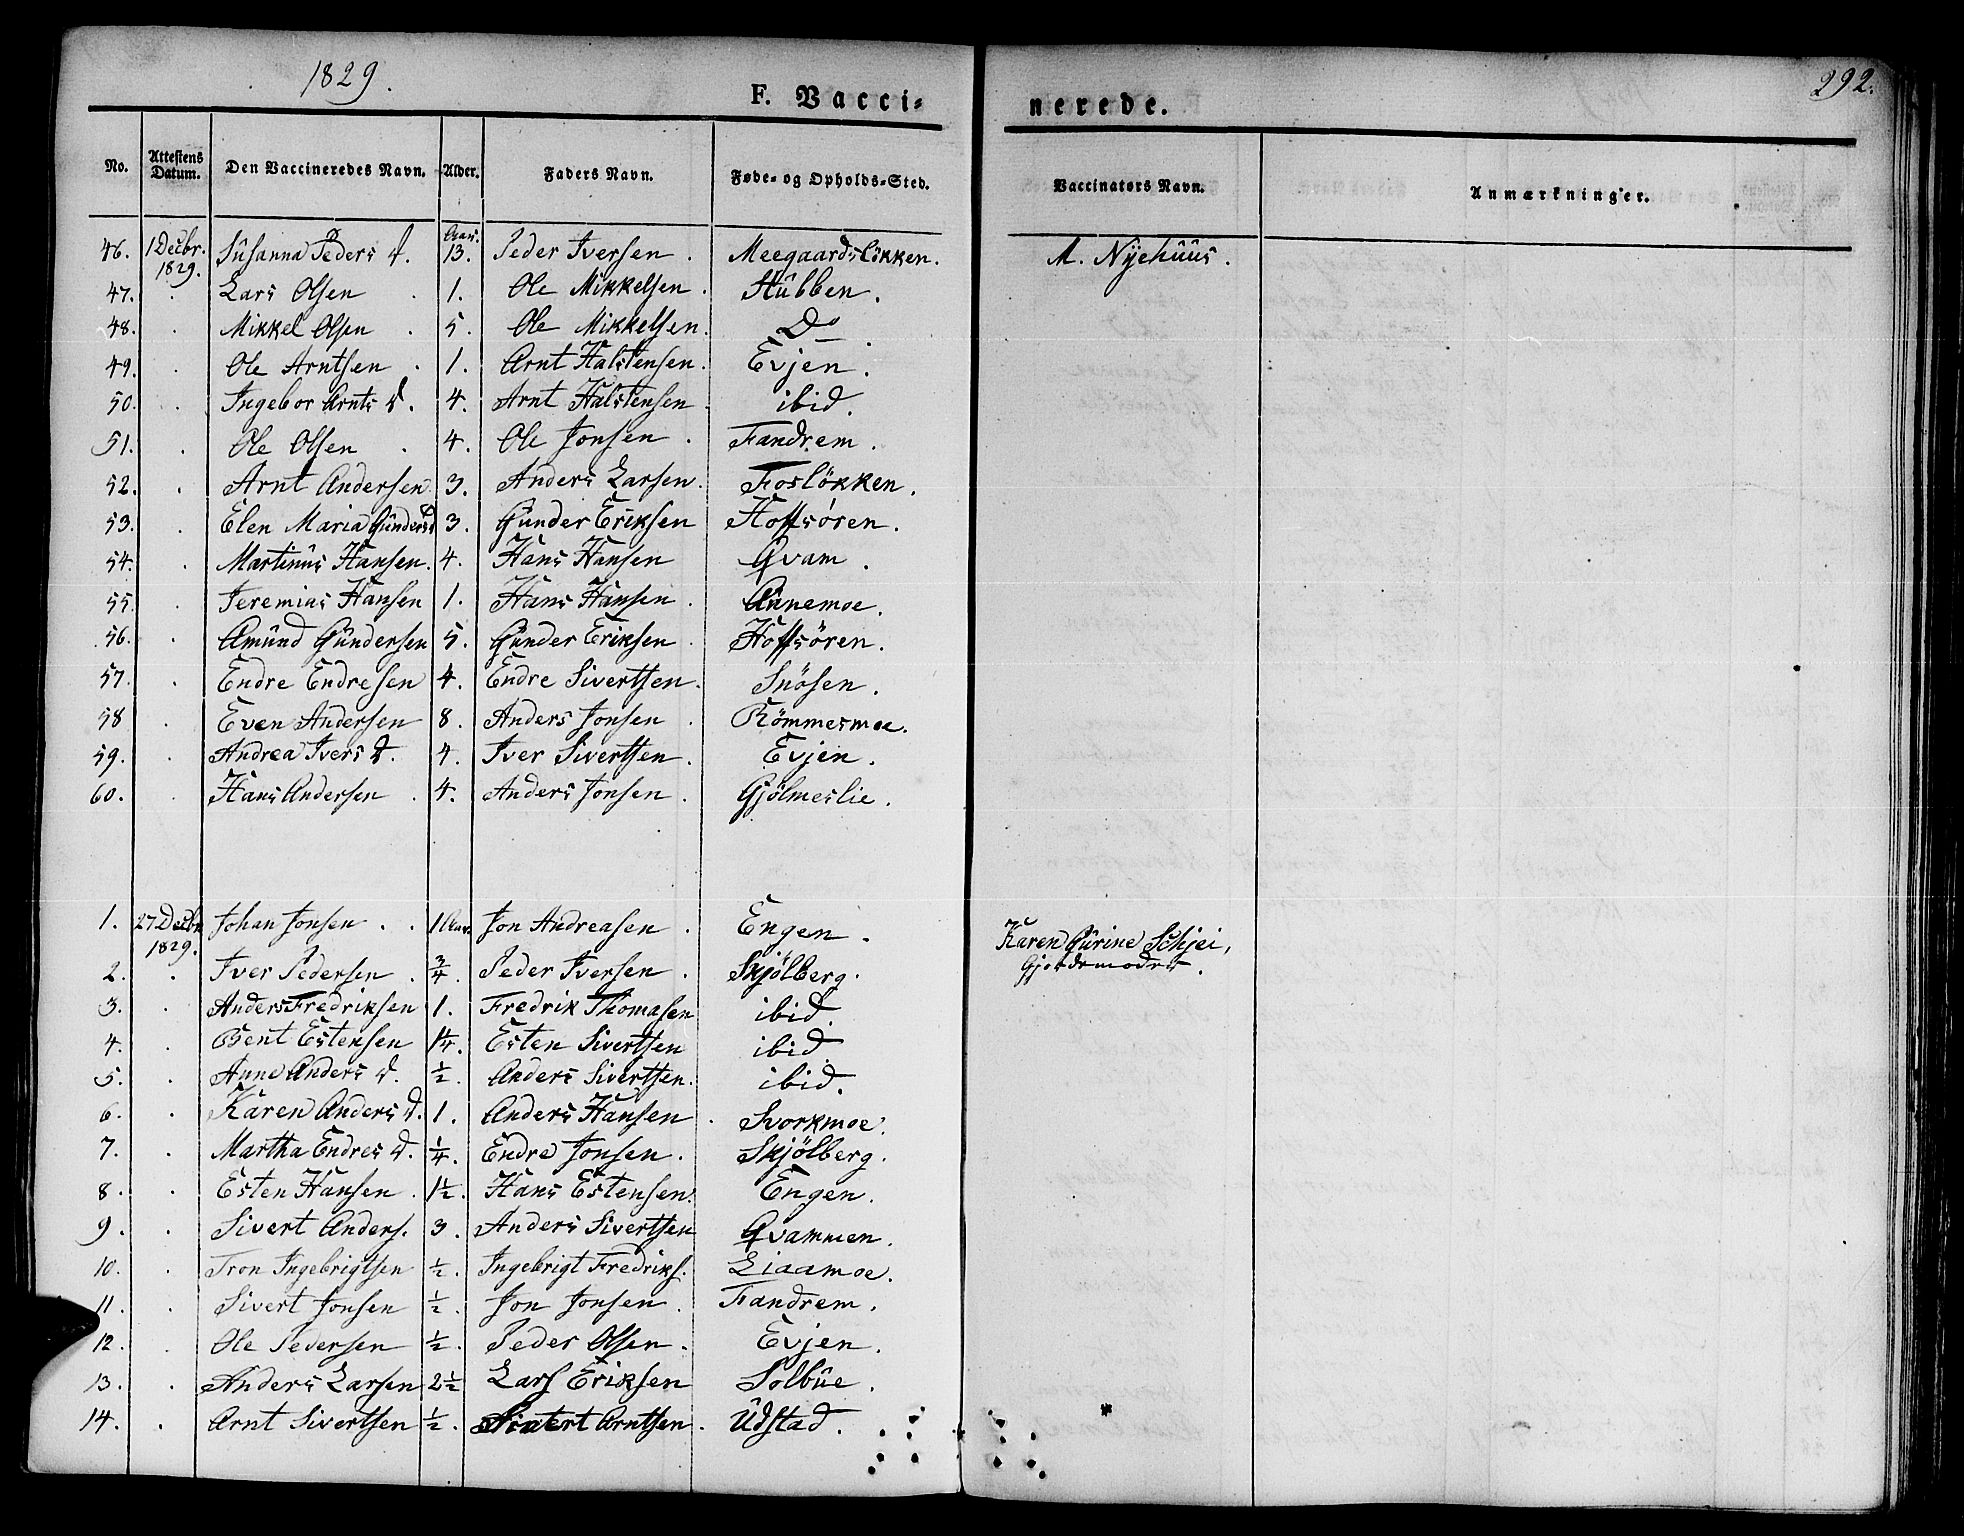 1829.
F. Vacci=
nerede.
292.
No. Attestens Datum. Den Vaccineredes Navn. Alder. Faders Navn. Føde- og Opholds-Sted. Vaccinators Navn. Anmærkninger.
46. 1 Decbr. 1829. Susanna Peders D. Aar. 13. Peder Iversen. Meegaardsløkken. M. Nyehuus.
47. . Lars Olsen . 1. Ole Mikkelsen. Stubben.
48. . Mikkel Olsen . 5. Ole Mikkelsen. Do.
49. . Ole Arntsen . 1. Arnt Halstensen. Evjen.
50. . Ingebor Arnts D. 4. Arnt Halstensen. ibid.
51. . Ole Olsen . 4. Ole Jonsen. Fandrem.
52. . Arnt Andersen 3. Anders Larsen. Fosløkken.
53. . Elen Maria Gunders D 3. Gunder Eriksen Hoffsören.
54. . Martinus Hansen. 4. Hans Hansen Qvam.
55. . Jeremias Hansen 1. Hans Hansen. Annemoe.
56. . Amund Gundersen 5. Gunder Eriksen. Hoffsören.
57. . Endre Endresen 4. Endre Sivertsen. Snösen.
58 . Even Andersen 8. Anders Jonsen. Römmesmoe.
59. . Andrea Ivers D. 4. Iver Sivertsen. Evjen.
60. . Hans Andersen . 4. Anders Jonsen. Gjölmeslie.
1. 27 Decbr. 1829. Johan Jonsen . . 1 Aar. Jon Andreasen. Engen. Karen Gurine Schjei,
Gjordemoder.
2. . Iver Pedersen . 3/4. Peder Iversen. Skjölberg.
3. . Anders Fredriksen 1. Fredrik Thomasen ibid.
4. . Bent Estensen 1 1/4. Esten Sivertsen ibid.
5. . Anne Anders D. 1/2. Anders Sivertsen. ibid.
6. . Karen Anders D. 1. Anders Hansen. Svorkmoe.
7. . Martha Endres D. 1/4. Endre Jonsen. Skjölberg.
8. . Esten Hansen. 1 1/2. Hans Estensen. Engen.
9. . Sivert Anders. 3. Anders Sivertsen Qvammen.
10. . Tron Ingebrigtsen 1/2. Ingebrigt Fredriks. Liaamoe.
11. . Sivert Jonsen 1/2. Jon Jonsen. Fandrem.
12. . Ole Pedersen 1/2. Peder Olsen. Evjen.
13. . Anders Larsen 2 1/2 Lars Eriksen Solbue.
14. . Arnt Sivertsen 1/2. Sivert Arntsen. Udstad.